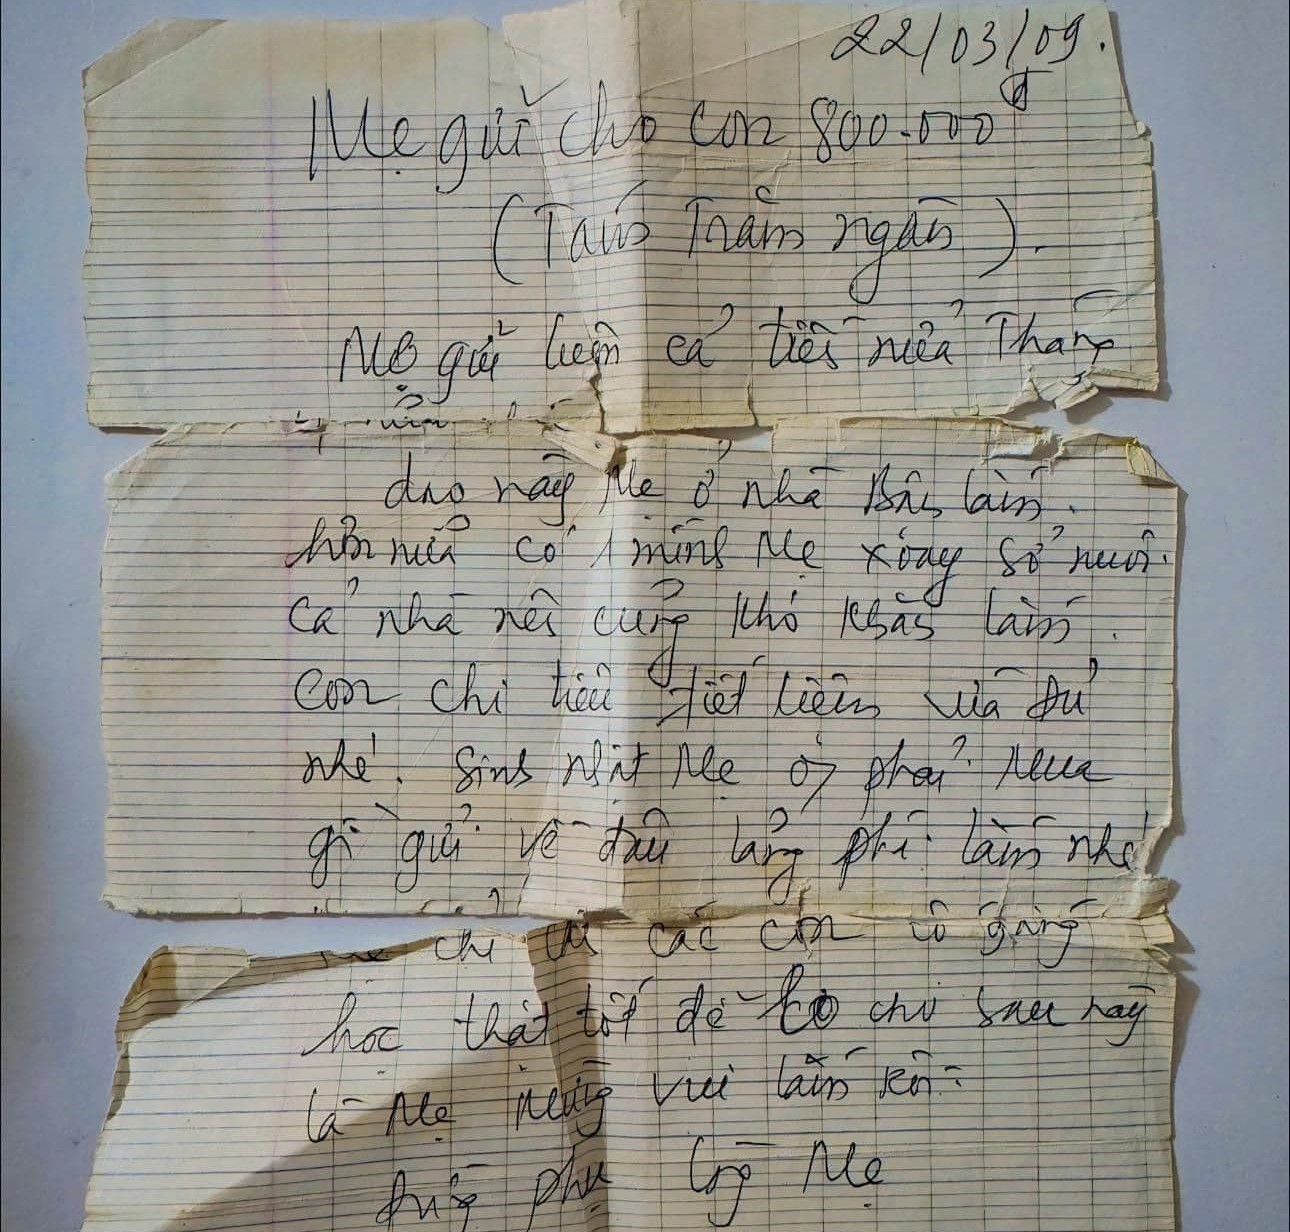 22/03/09.
Mẹ gửi cho con 800.000đ
(Tám Trăm ngàn).
Mẹ gửi luôn cả tiền nửa Tháng
dạo này Mẹ ở nhà Bán lắm.
hơn nữa có 1 mình Mẹ xoay sở nuôi
cả nhà nên cũng khó khăn lắm.
con chi tiêu tiết kiệm vừa đủ
nhé. Sinh nhật Mẹ phải Mua
gì gửi về đâu lãng phí lắm nhé
chỉ các con cố gắng
học thật tốt để lo cho sau này
là Mẹ Mừng vui lắm rồi.
Đừng phụ lòng Mẹ